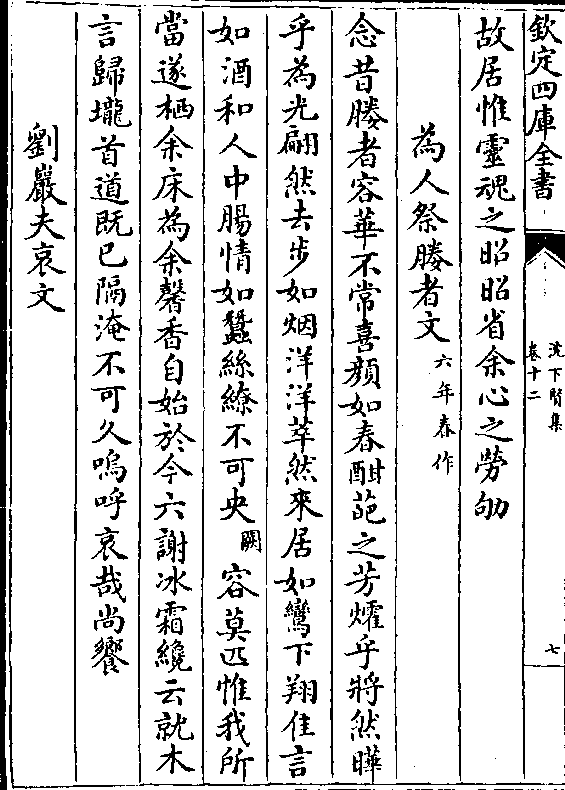 欽定四庫全書
沈下賢集
卷十二
七
故居惟靈魂之昭昭省余心之勞劬
為人祭媵者文六年春作
念昔媵者容華不常喜顏如春酣葩之芳燿乎將然曄
乎為光翩然去步如烟洋洋萃然來居如鸞下翔佳言
如酒和人中腸情如蠶絲繚不可央闕容莫匹惟我所
當遂栖余床為余馨香自始於今六謝冰霜纔云就木
言歸壠首道既已隔淹不可久嗚呼哀哉尚饗
劉巖夫哀文